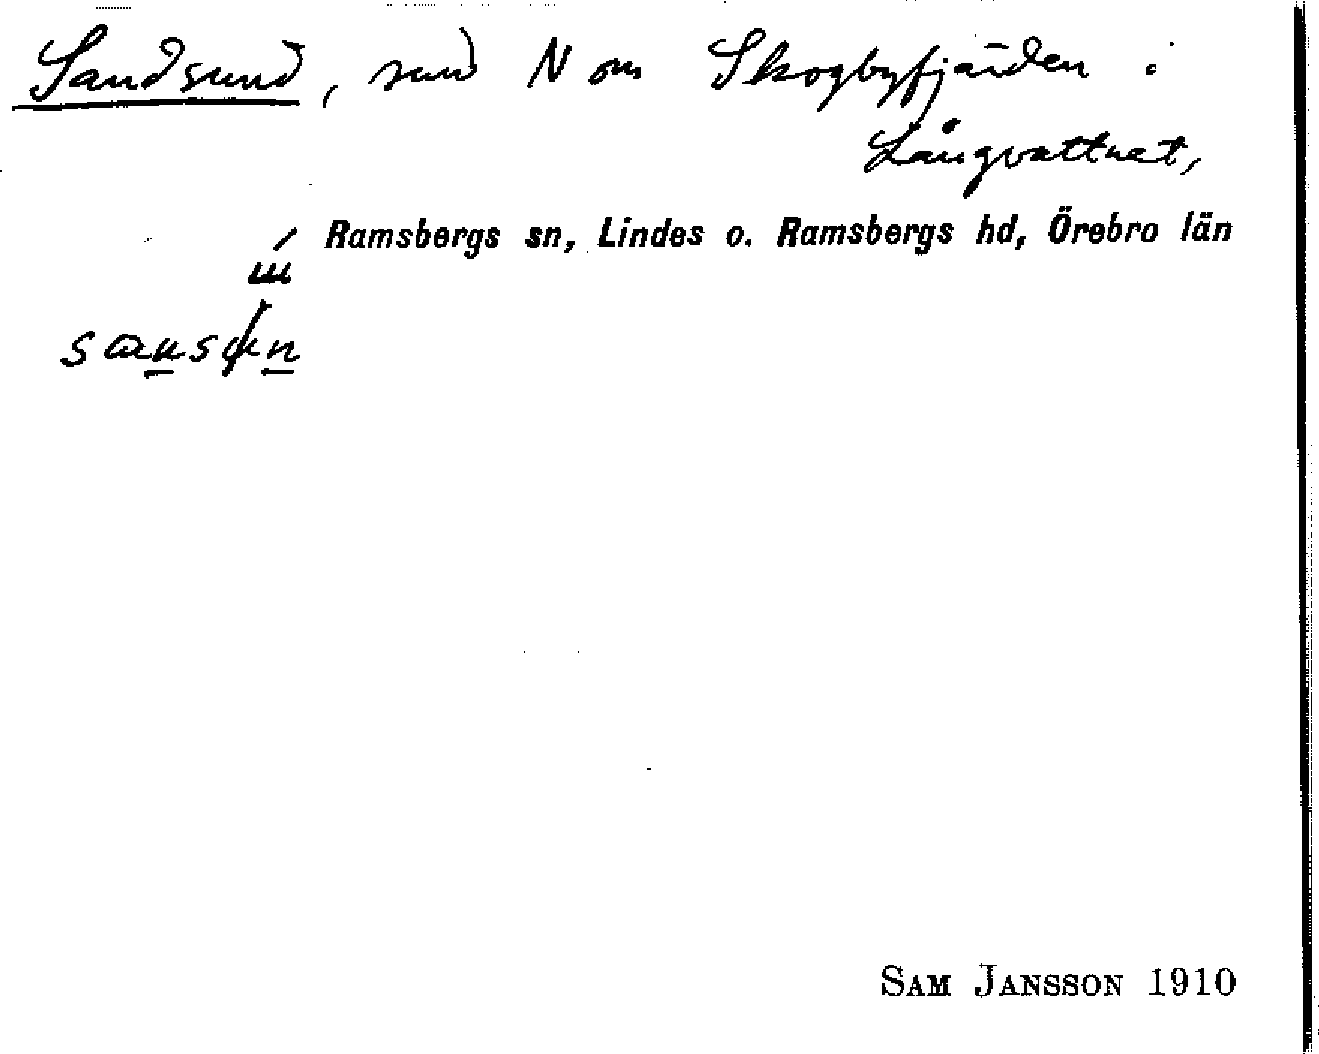 Sandsund, sund N om Skogbyfjärden i
Långvattnet,
Ramsbergs sn, Lindes o. Ramsbergs hd, Örebro län
SAM JANSSON 1910